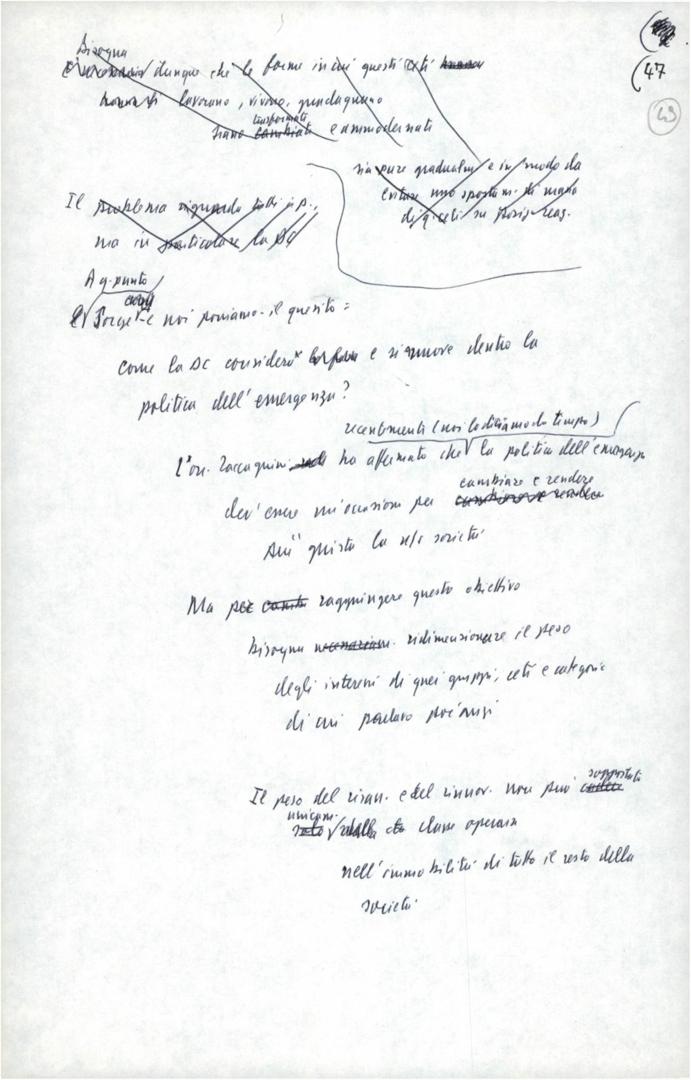 47
49
Bisogna
È necessario dunque che le forme in cui questi ceti
lavorano, vivono, guadagnano
trasformati
siano cambiati e ammodernati
sia pure gradualm. e in modo da
evitare uno spostam. di massa
di q. ceti su posiz. reaz.
Il problema riguarda tutti i p.,
ma in particolare la DC
A q. punto
Sorge e noi poniamo il quesito:
come la DC considera e si muove dentro la
politica dell'emergenza?
recentemente (noi lo diciamo da tempo)
L'on. Zaccagnini ha affermato che la politica dell'emergenza
dev'essere un'occasione per
cambiare e rendere
più giusta la n/s società
Ma per raggiungere questo obiettivo
bisogna necessariam. ridimensionare il peso
degli interessi di quei gruppi, ceti e categorie
di cui parlavo poc'anzi
Il peso del risan. e del rinnov. non può
sopportati
unicam.
solo dalla classe operaia
nell'immobilità di tutto il resto della
società